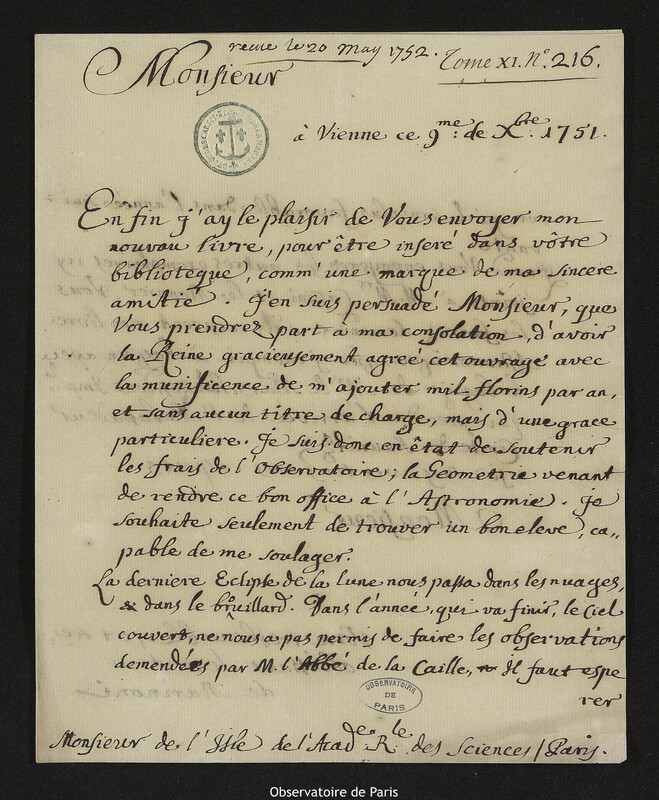 recue le 20 May 1752.
Tome XI. N.º 216.
Monsieur
à Vienne ce 9.me de Xbre. 1751.
En fin j'ay le plaisir de Vous envoyer mon
nouvau livre, pour être inseré dans vôtre
biblioteque, comm' une marque de ma sincere
amitié. J'en suis persuadé Monsieur, que
Vous prendrez part à ma consolation, d'avoir
la Reine gracieusement agreé cet ouvrage avec
la munificence de m'ajouter mil florins par an,
et sans aucun titre de charge, mais d'une grace
particuliere. Je suis donc en êtat de soutenir
les frais de l'Observatoire; la Geometrie venant
de rendre ce bon office à l'Astronomie. Je
souhaite seulement de trouver un bon eleve, ca,,
pable de me soulager.
La derniere Eclipse de la lune nous passa dans les nuages,
dans le brouillard. Dans l'année, qui va finir, le Ciel
couvert, ne nous a pas permis de faire les observations
demendées par M. l'Abbé de la Caille, Il faut espe
rer
OBSERVATOIRE
DE
PARIS
Monsieur de l'Isle de l'Acad.de R.le des Sciences / Paris.
Observatoire de Paris